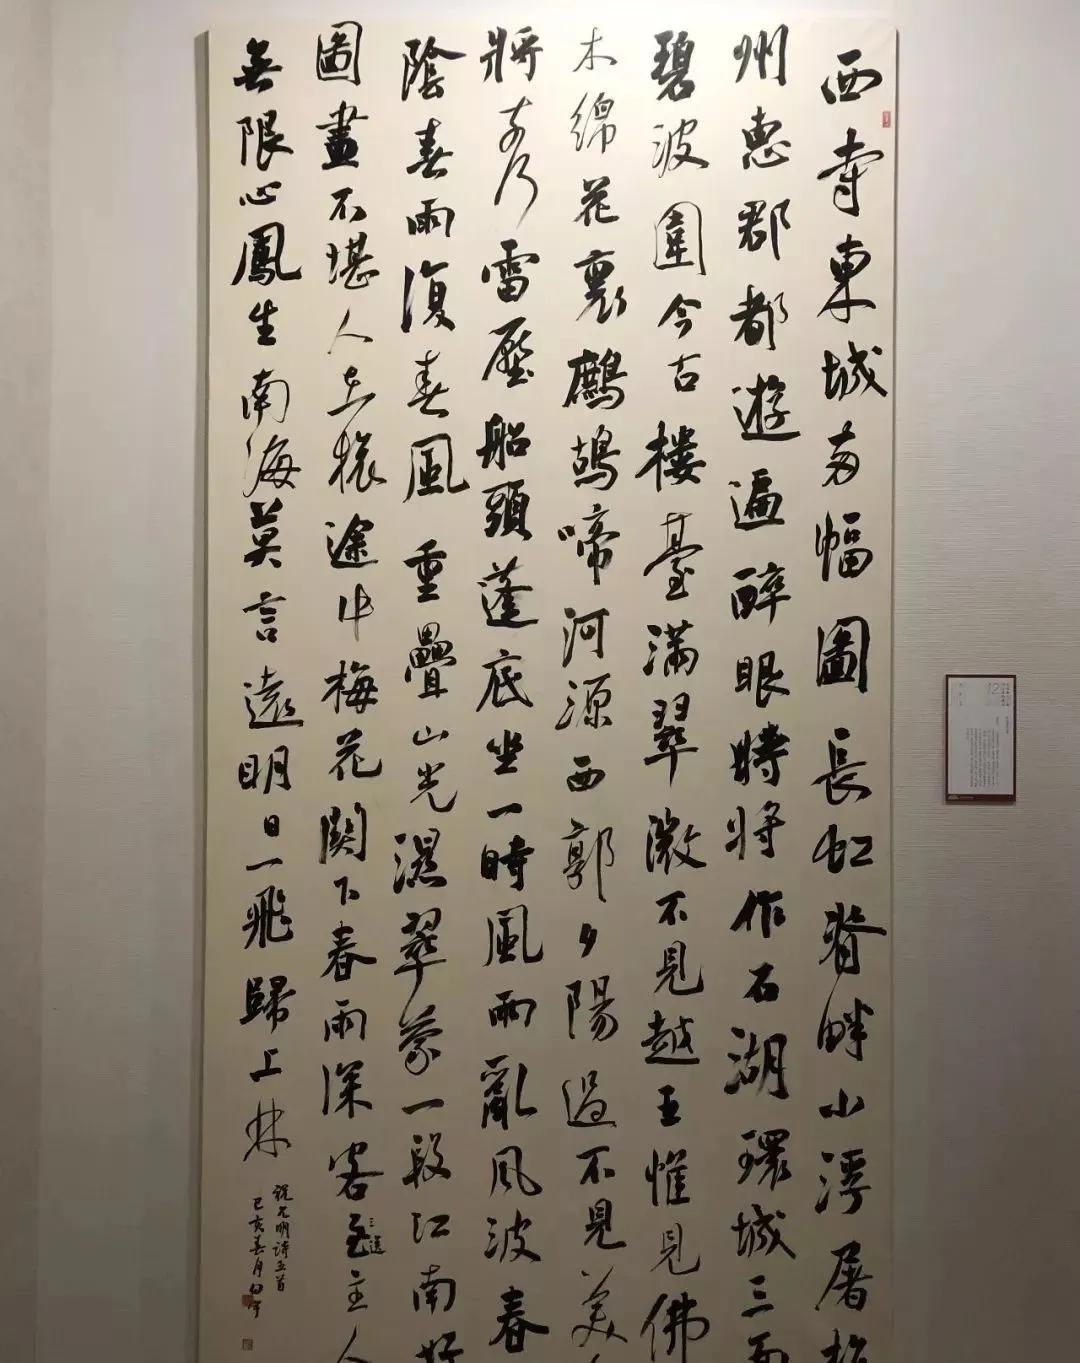 西寺東城两幅圖長虹脊畔小浮屠
州惠郡都遊遍醉眼時將作石湖環城三面
碧波圍今古樓臺滿翠微不見越王惟見佛
木綿花裏鷓鴣啼河源西郭夕陽過不見美
將
雷壓船頭蓬底坐一時風雨亂風波春
陰春雨復春風重疊山光濕翠蒙一段江南好
圖畫不堪人在旅途中梅花關下春雨深客至主人
無限心鳳生南海莫言遠明日一飛歸上林
祝允明詩五首
己亥春月